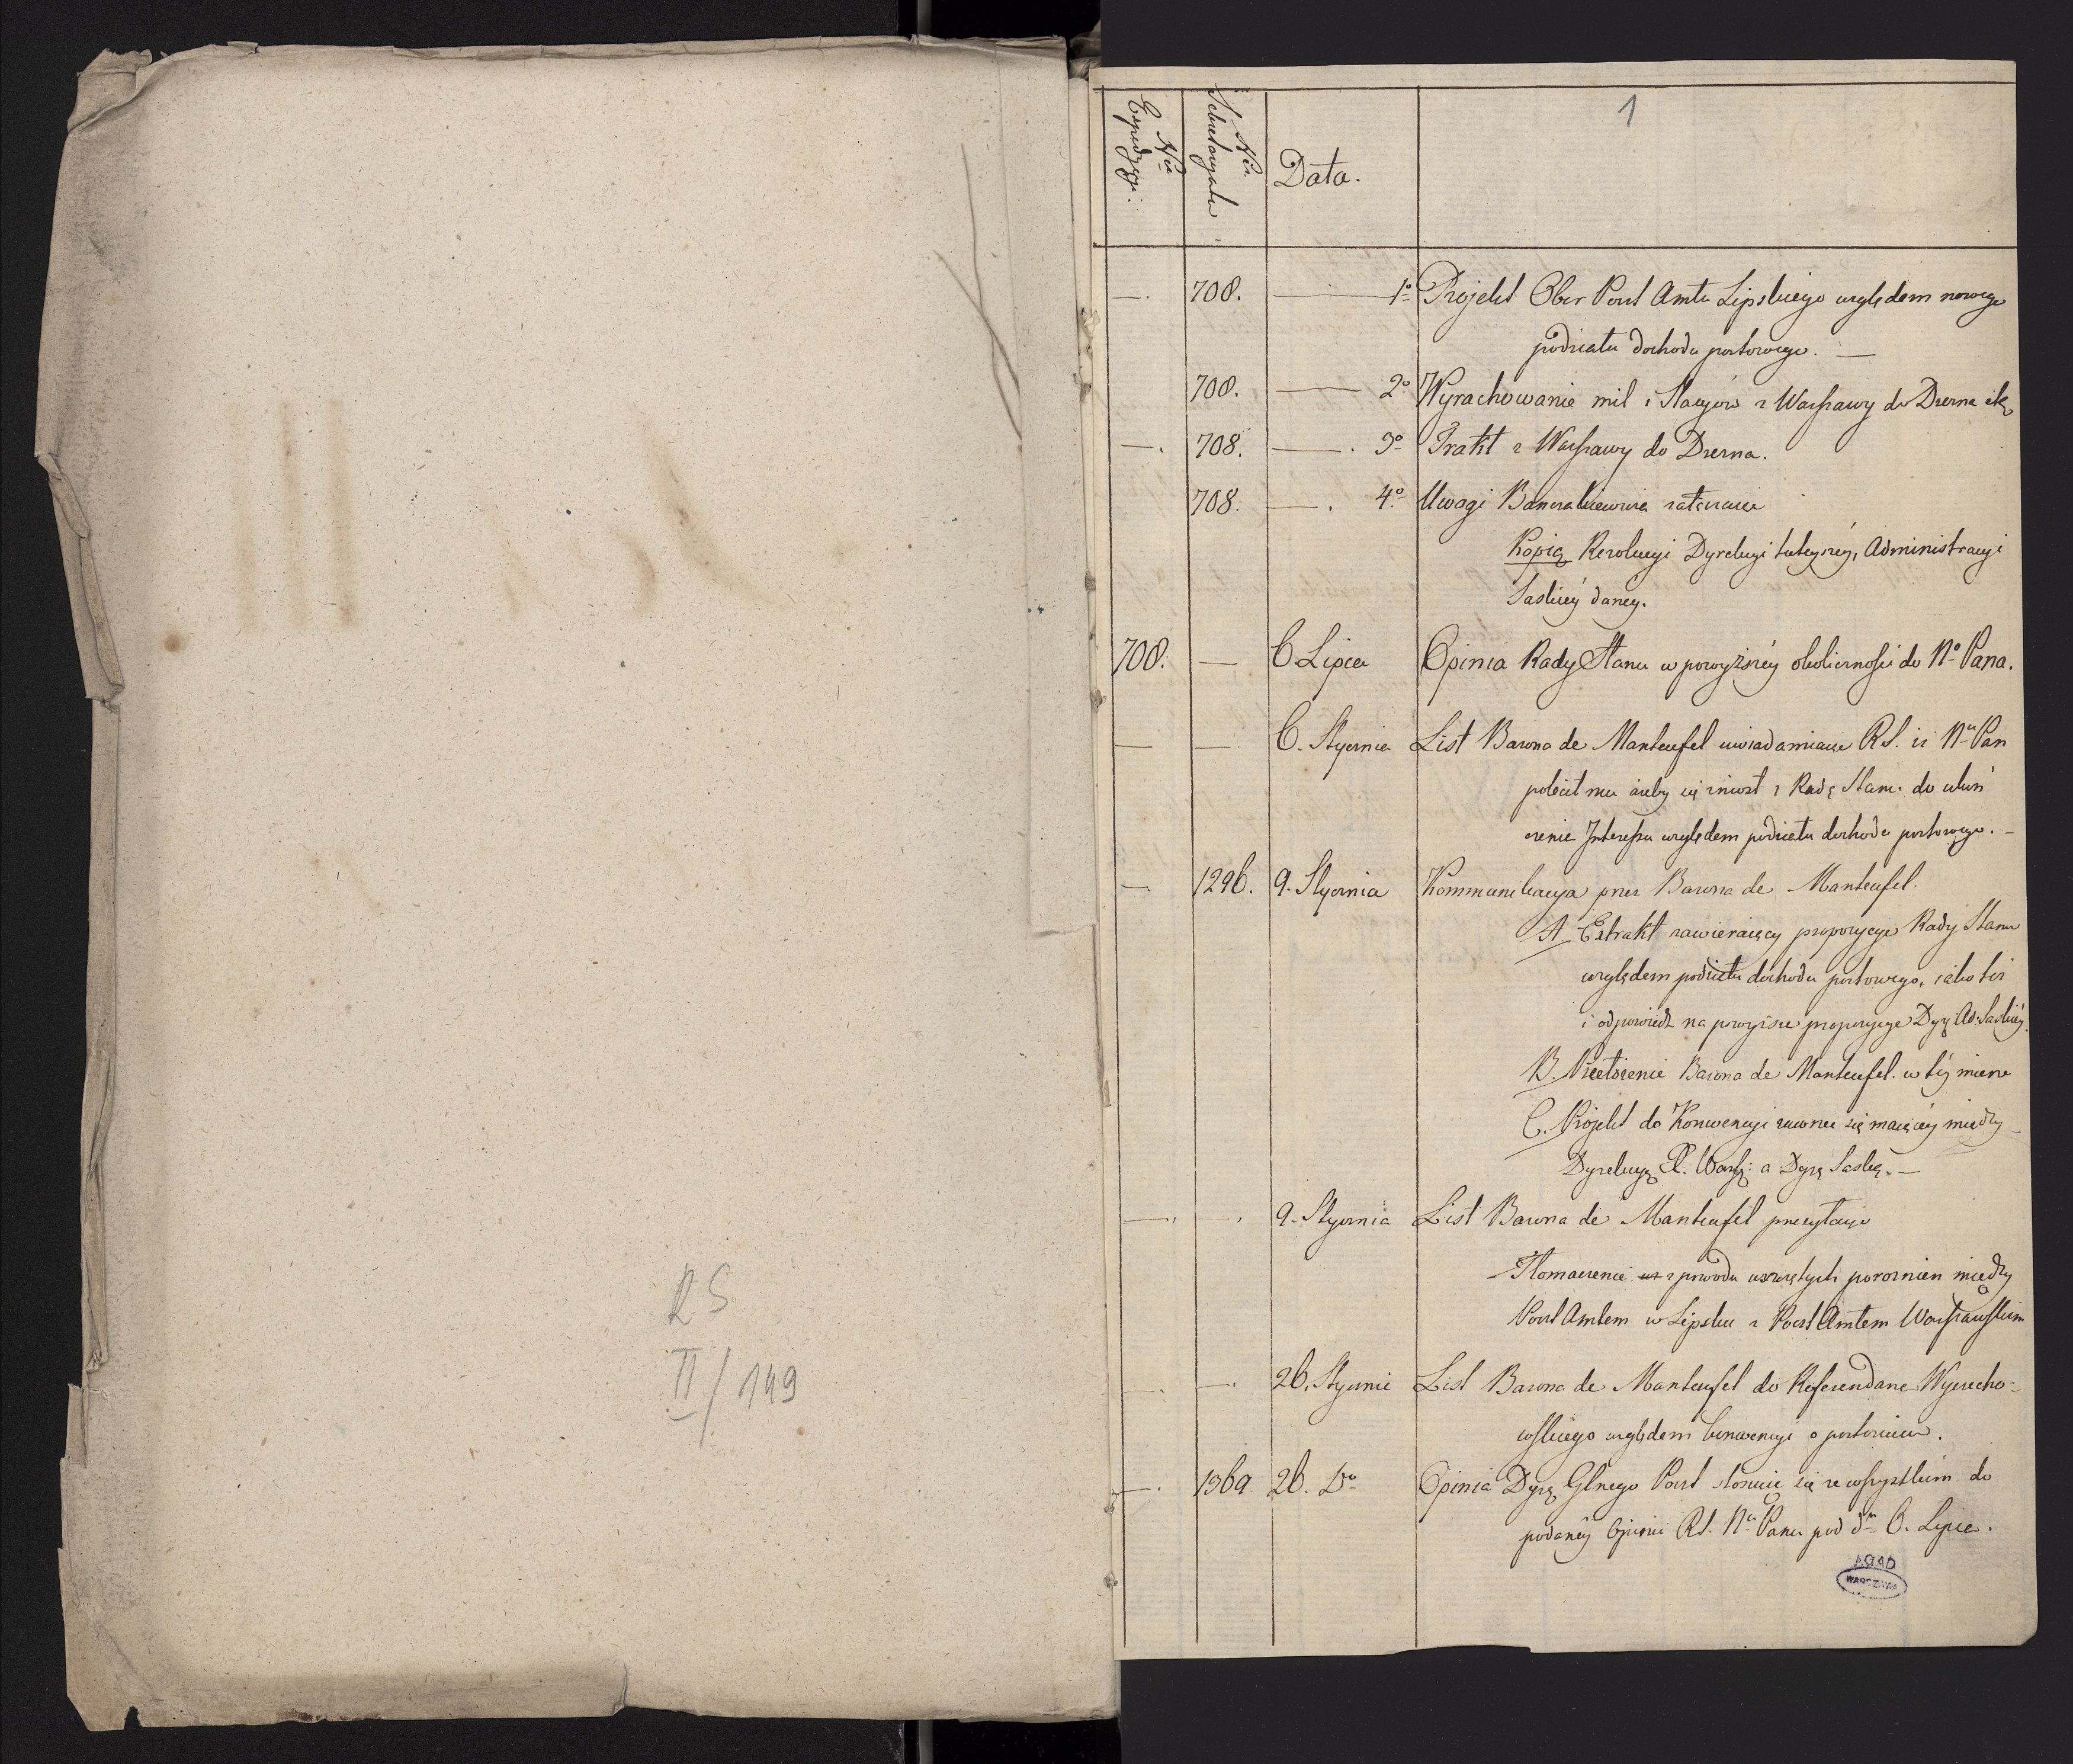 RS
II/149
1
Nr Expedycyi:
Nr Sekretaryatu
Data.
—. 708. — 1° Projekt Ober Post Amtu Lipskiego względem nowego
podziału dochodu pocztowego. —
708. — 2° Wyrachowanie mil i Stacyów z Warszawy do Drezna etc
—. 708. —. 3° Trakt z Warszawy do Drezna.
708. —. 4° Uwagi załączaiące
Kopią Rezolucyi Dyrekcyi tuteyszey, Administracyi
Saskiéy daney.
708. — 6 Lipca Opinia Rady Stanu w powyższéy okoliczności do No Pana.
— — 6. Stycznia List Barona de Manteufel uwiadamiaiące RS. iż Nu Pan
polecił mu ażeby się zniósł z Radą Stanu do ukoń
czenia Interessu względem podziału dochodu pocztowego. —
— 1296. 9. Stycznia Kommunikacya przez Barona de Manteufel.
A. Extrakt zawieraiący propozycye Rady Stanu
względem podziału dochodu pocztowego, iako też
i odpowiedź na powyższe propozycye Dyr: Ad: Saskiéy.
B. Barona de Manteufel. w téy mierze
C. Projekt do Konwencyi zawrzeć się maiącéy między
Dyrekcyą X. Warsz: a Dyrą Saską. —
— . 9. Stycznia List Barona de Manteufel przesyłaiąc
Tłomaczenie z powodu wszczętych poróżnien między
Post Amtem w Lipsku z Poczt Amtem Warszawskim
— — 26. Stycznia List Barona de Manteufel do Referendarza Wyczecho-
wskiego względem konwencyi o pocztowym.
—. 1369 26. Do Opinia Dyrą Glnego Poczt stosuie się ze wszystkiém do
podanéy Opinii RS. Nu Panu pod dn 6. Lipca.
AGAD
WARSZAWA